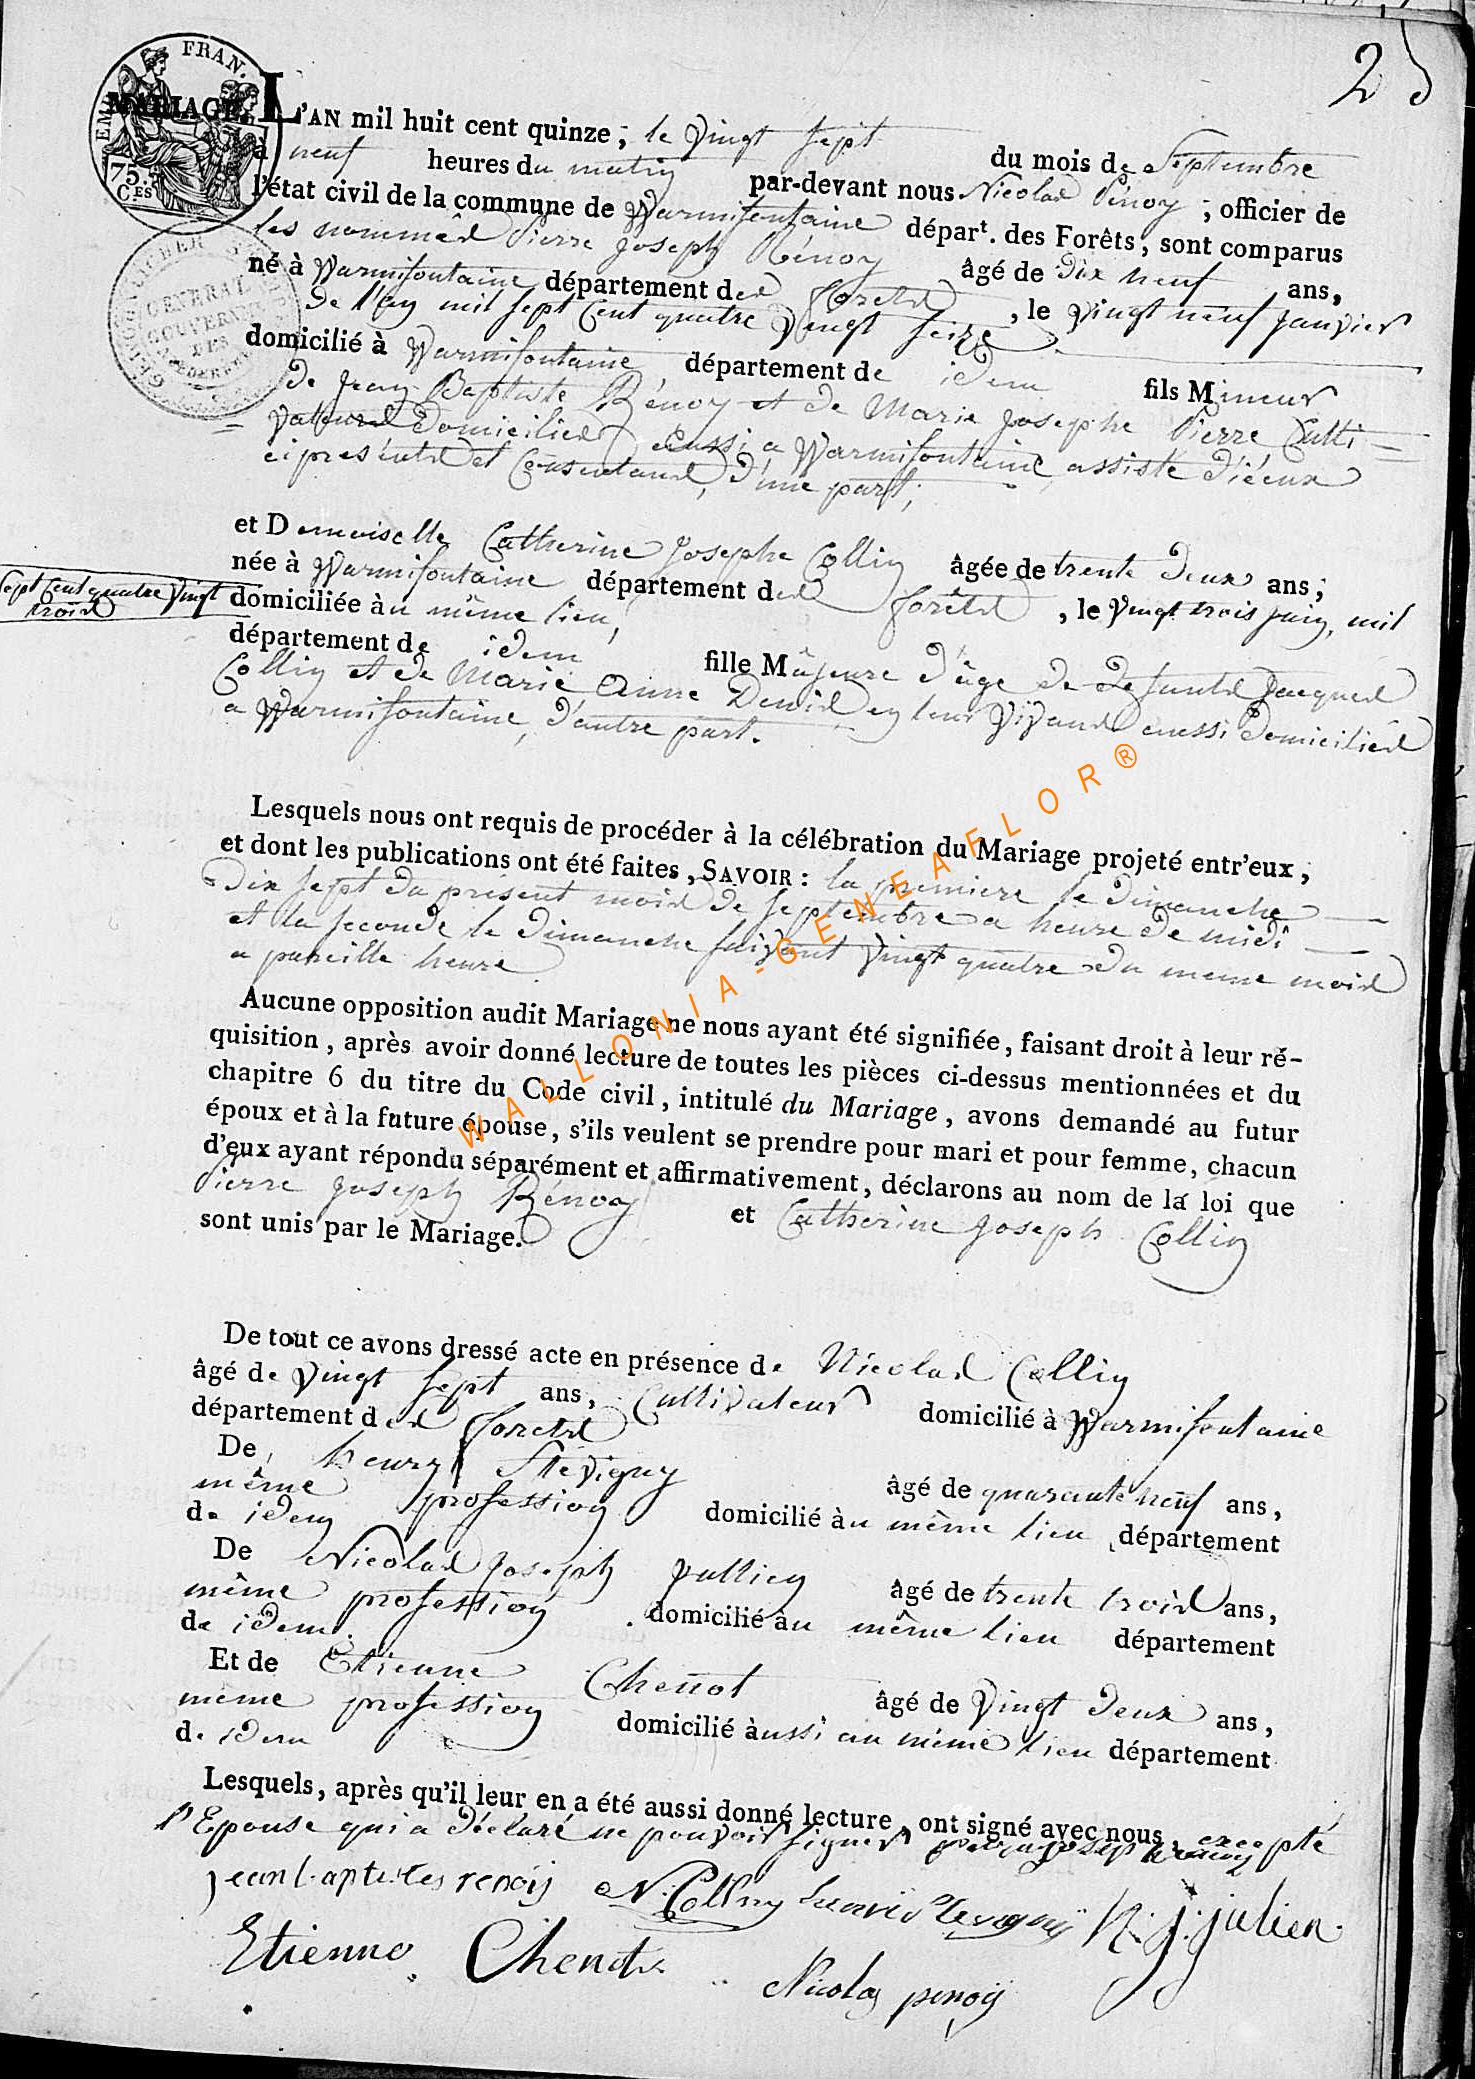 25
EMP. FRAN.
75. C.ES
GENERAL GOUVERNEM
DES
MARIAGE. L'AN mil huit cent quinze, le vingt sept du mois de Septembre
à neuf heures du matin par-devant nous Nicolas Pénoy, officier de
l'état civil de la commune de Warmifontaine départ. des Forêts, sont comparus
les nommés Pierre Joseph Rénoy âgé de dix neuf ans,
né à Warmifontaine département des forêts, le vingt neuf janvier
de l'an mil sept cent quatre vingt seize
domicilié à Warmifontaine département de idem fils Mineur
de Jean Baptiste Rénoy et de Marie Josephe Pierre Culti=
vateurs domiciliés aussi a Warmifontaine assisté d'iceux
ci présents et consentans, d'une part;
et Demoiselle Catherine Josephe Collin âgée de trente deux ans;
née à Warmifontaine département des forêts, le vingt trois juin, mil
sept cent quatre vingt
trois
domiciliée àu même lieu,
département de idem fille Mâjeure d'âge de defunts Jacques
Collin et de Marie Anne Denis en leur vivans aussi domiciliés
a Warmifontaine, d'autre part.
Lesquels nous ont requis de procéder à la célébration du Mariage projeté entr'eux,
et dont les publications ont été faites, SAVOIR: la premiere le dimanche
Dix sept du présent mois de septembre a heure de midi
et la seconde le dimanche suivant vingt quatre du meme mois
a pareille heure
Aucune opposition audit Mariage ne nous ayant été signifiée, faisant droit à leur ré-
quisition, après avoir donné lecture de toutes les pièces ci-dessus mentionnées et du
chapitre 6 du titre du Code civil, intitulé du Mariage, avons demandé au futur
époux et à la future épouse, s'ils veulent se prendre pour mari et pour femme, chacun
d'eux ayant répondu séparément et affirmativement, déclarons au nom de la loi que
Pierre Joseph Rénoy et Catherine Joseph Collin
sont unis par le Mariage.
De tout ce avons dressé acte en présence de Nicolas Collin
âgé de vingt sept ans, Cultivateur domicilié à Warmifontaine
département des forêts
De henry Stevigny âgé de quarante neuf ans,
même profession domicilié àu même lieu département
de idem
De Nicolas Joseph Jullien âgé de trente trois ans,
même profession domicilié àu même lieu département
de idem
Et de Etienne Chenot âgé de vingt deux ans,
meme profession domicilié àussi au même lieu département
de idem
Lesquels, après qu'il leur en a été aussi donné lecture, ont signé avec nous, excepté
l'Epouse qui a déclaré ne pouvoir signer
jean baptistes renoij N. Collin N. J. julien
Etienne Chenot Nicolas penoij
WALLONIA-GENEAFLOR®